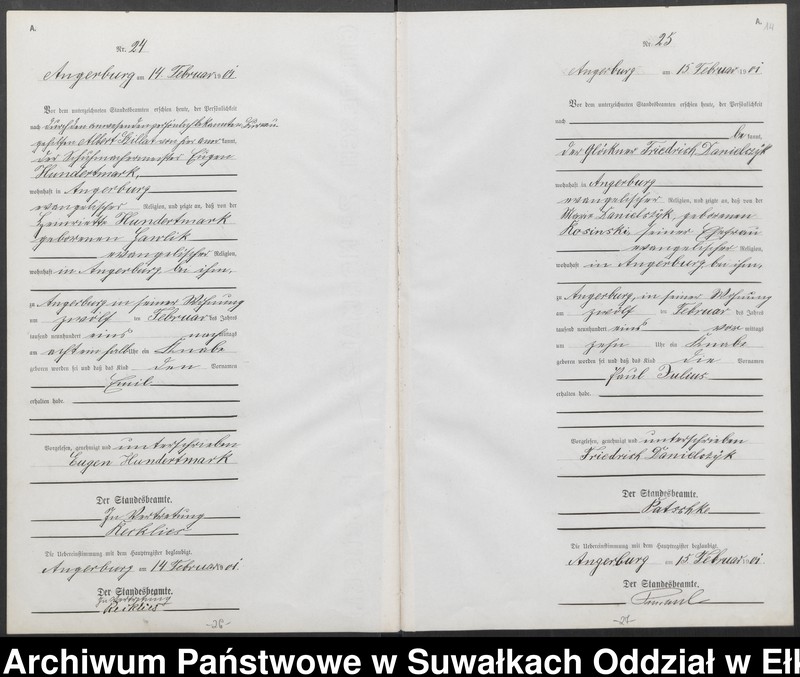 A.
Nr. 24
Angerburg am 14. Februar 1901
Vor dem unterzeichneten Standesbeamten erschien heute, der Persönlichkeit
nach durch den anwesenden persönlich bekannten
gehilfen Albert von hier anerkannt,
der Schuhmachermeister Eugen
Hundertmark,
wohnhaft in Angerburg
evangelischer Religion, und zeigte an, daß von der
Henriette Hundertmark
geborenen Gawlik
evangelischer Religion,
wohnhaft in Angerburg bei ihm,
zu Angerburg in seiner Wohnung
am zwölf ten Februar des Jahres
tausend neunhundert eins nachmittags
um acht ein halb Uhr ein Knabe
geboren worden sei und daß das Kind den Vornamen
Emil
erhalten habe.
Vorgelesen, genehmigt und unterschrieben
Eugen Hundertmark
Der Standesbeamte.
In Vertretung
Die Uebereinstimmung mit dem Hauptregister beglaubigt.
Angerburg am 14. Februar 1901
Der Standesbeamte.
In Vertretung
-26-
A.
Nr. 25
Angerburg am 15. Februar 1901
Vor dem unterzeichneten Standesbeamten erschien heute, der Persönlichkeit
nach
bekannt,
der Glöckner Friedrich Danielczyk
wohnhaft in Angerburg
evangelischer Religion, und zeigte an, daß von der
Danielczyk, geborenen
Kosinski, seiner Ehefrau
evangelischer Religion,
wohnhaft in Angerburg bei ihm,
zu Angerburg, in seiner Wohnung
am zwölf ten Februar des Jahres
tausend neunhundert eins vor mittags
um zehn Uhr ein Knabe
geboren worden sei und daß das Kind die Vornamen
Paul Julius
erhalten habe.
Vorgelesen, genehmigt und unterschrieben
Friedrich Danielczyk
Der Standesbeamte.
Patschke
Die Uebereinstimmung mit dem Hauptregister beglaubigt.
Angerburg am 15. Februar 1901
Der Standesbeamte.
-27-
Archiwum Państwowe w Suwałkach Oddział w Ełk